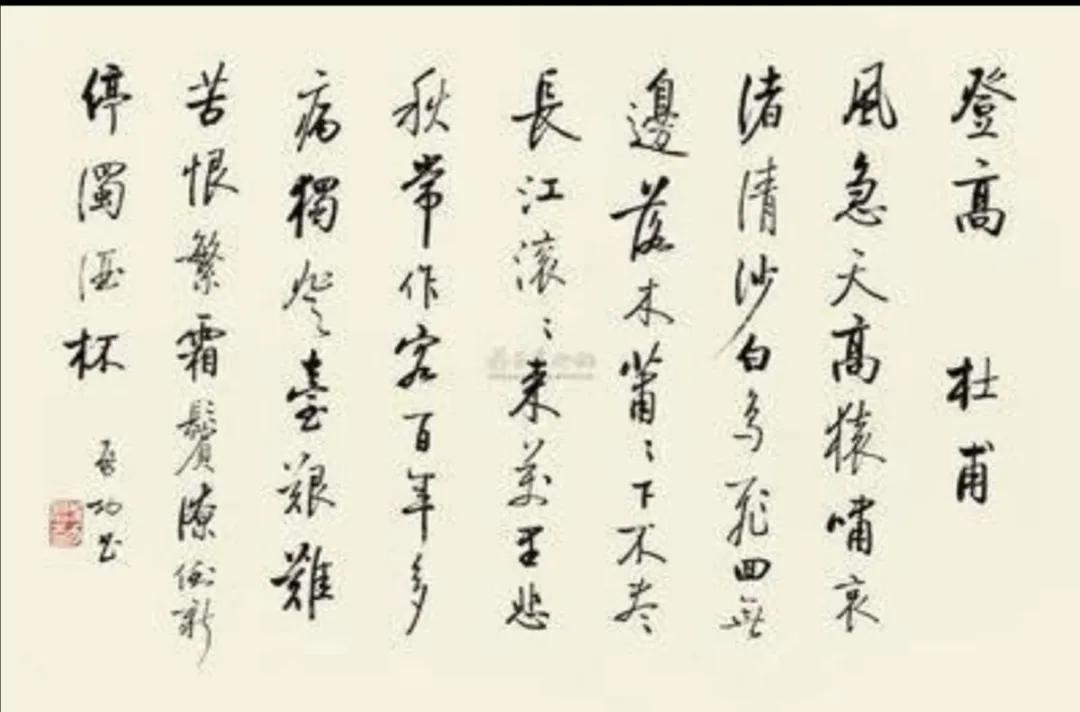 登高 杜甫
風急天高猿嘯哀
渚清沙白鳥飛回無
邊落木蕭〻下不盡
長江滾〻來萬里悲
秋常作客百年多
病獨登臺艱難
苦恨繁霜鬢潦倒新
停濁酒杯
啓功書